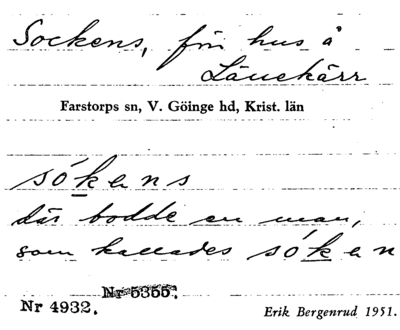 Sockens, fm hus å
Länekärr
Farstorps sn, V. Göinge hd, Krist. län
sókens
där bodde en man,
som kallades sóken
Nr 5355.
Nr 4932.
Erik Bergenrud 1951.